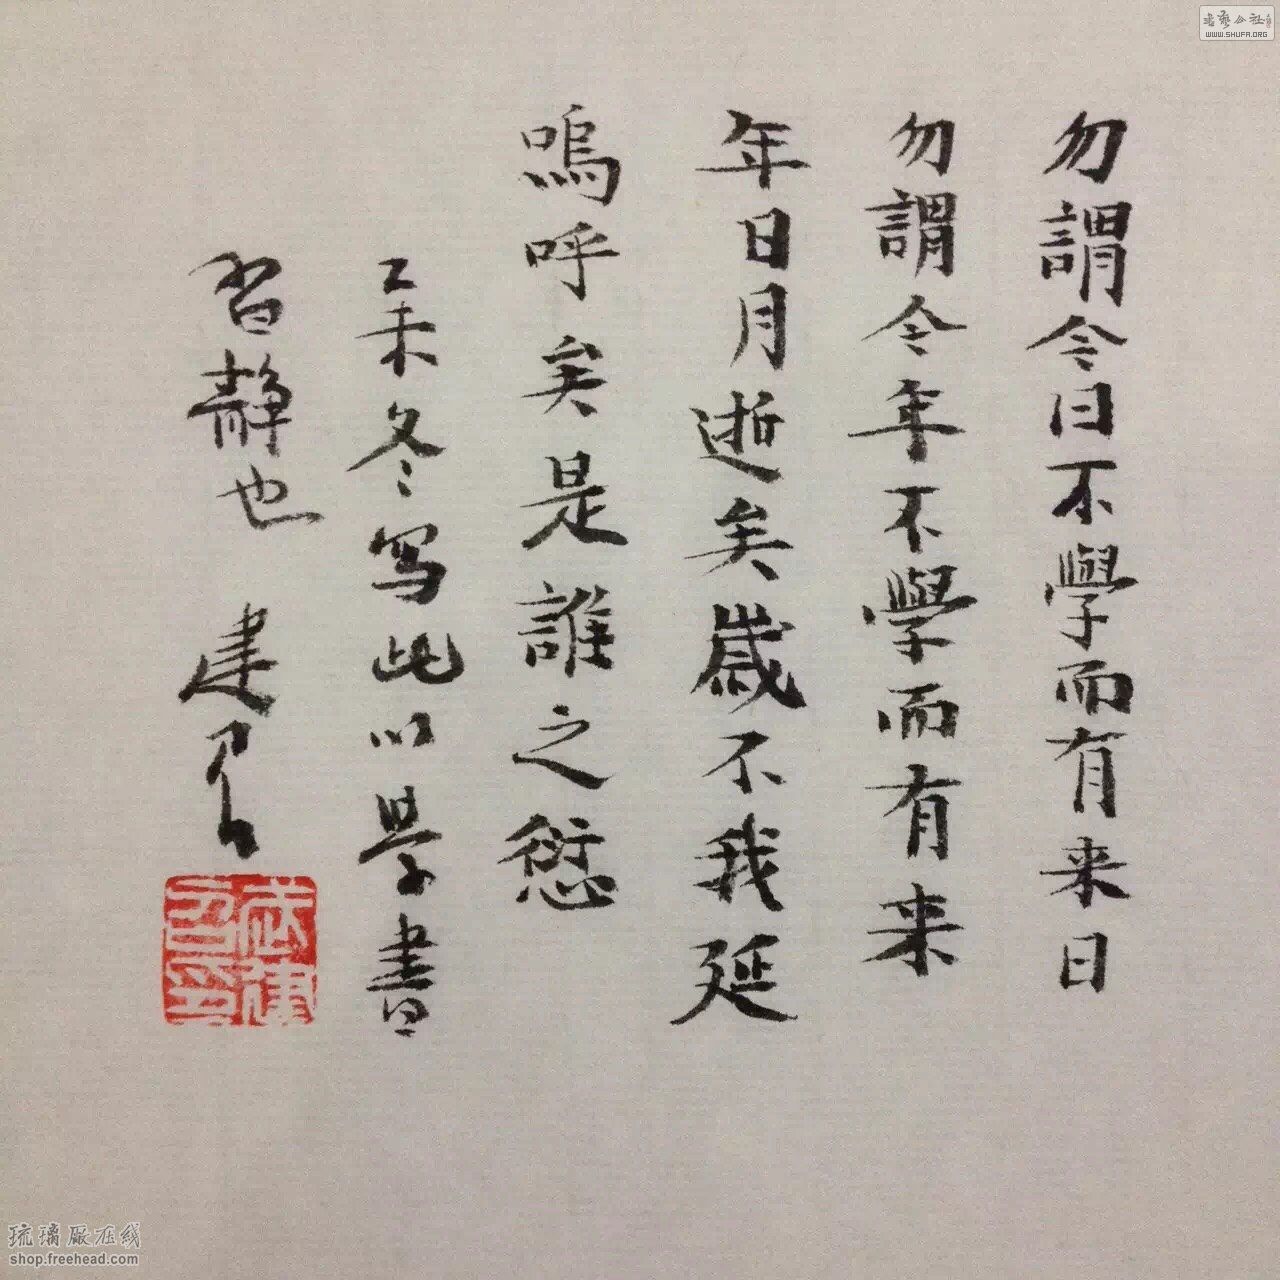 勿謂今日不學而有来日
勿謂今年不學而有来
年日月逝矣歲不我延
嗚呼矣是誰之愆
乙未冬写此以學書
習靜也 建
WWW.SHUFA.ORG
琉璃厰在线
shop.freehead.com